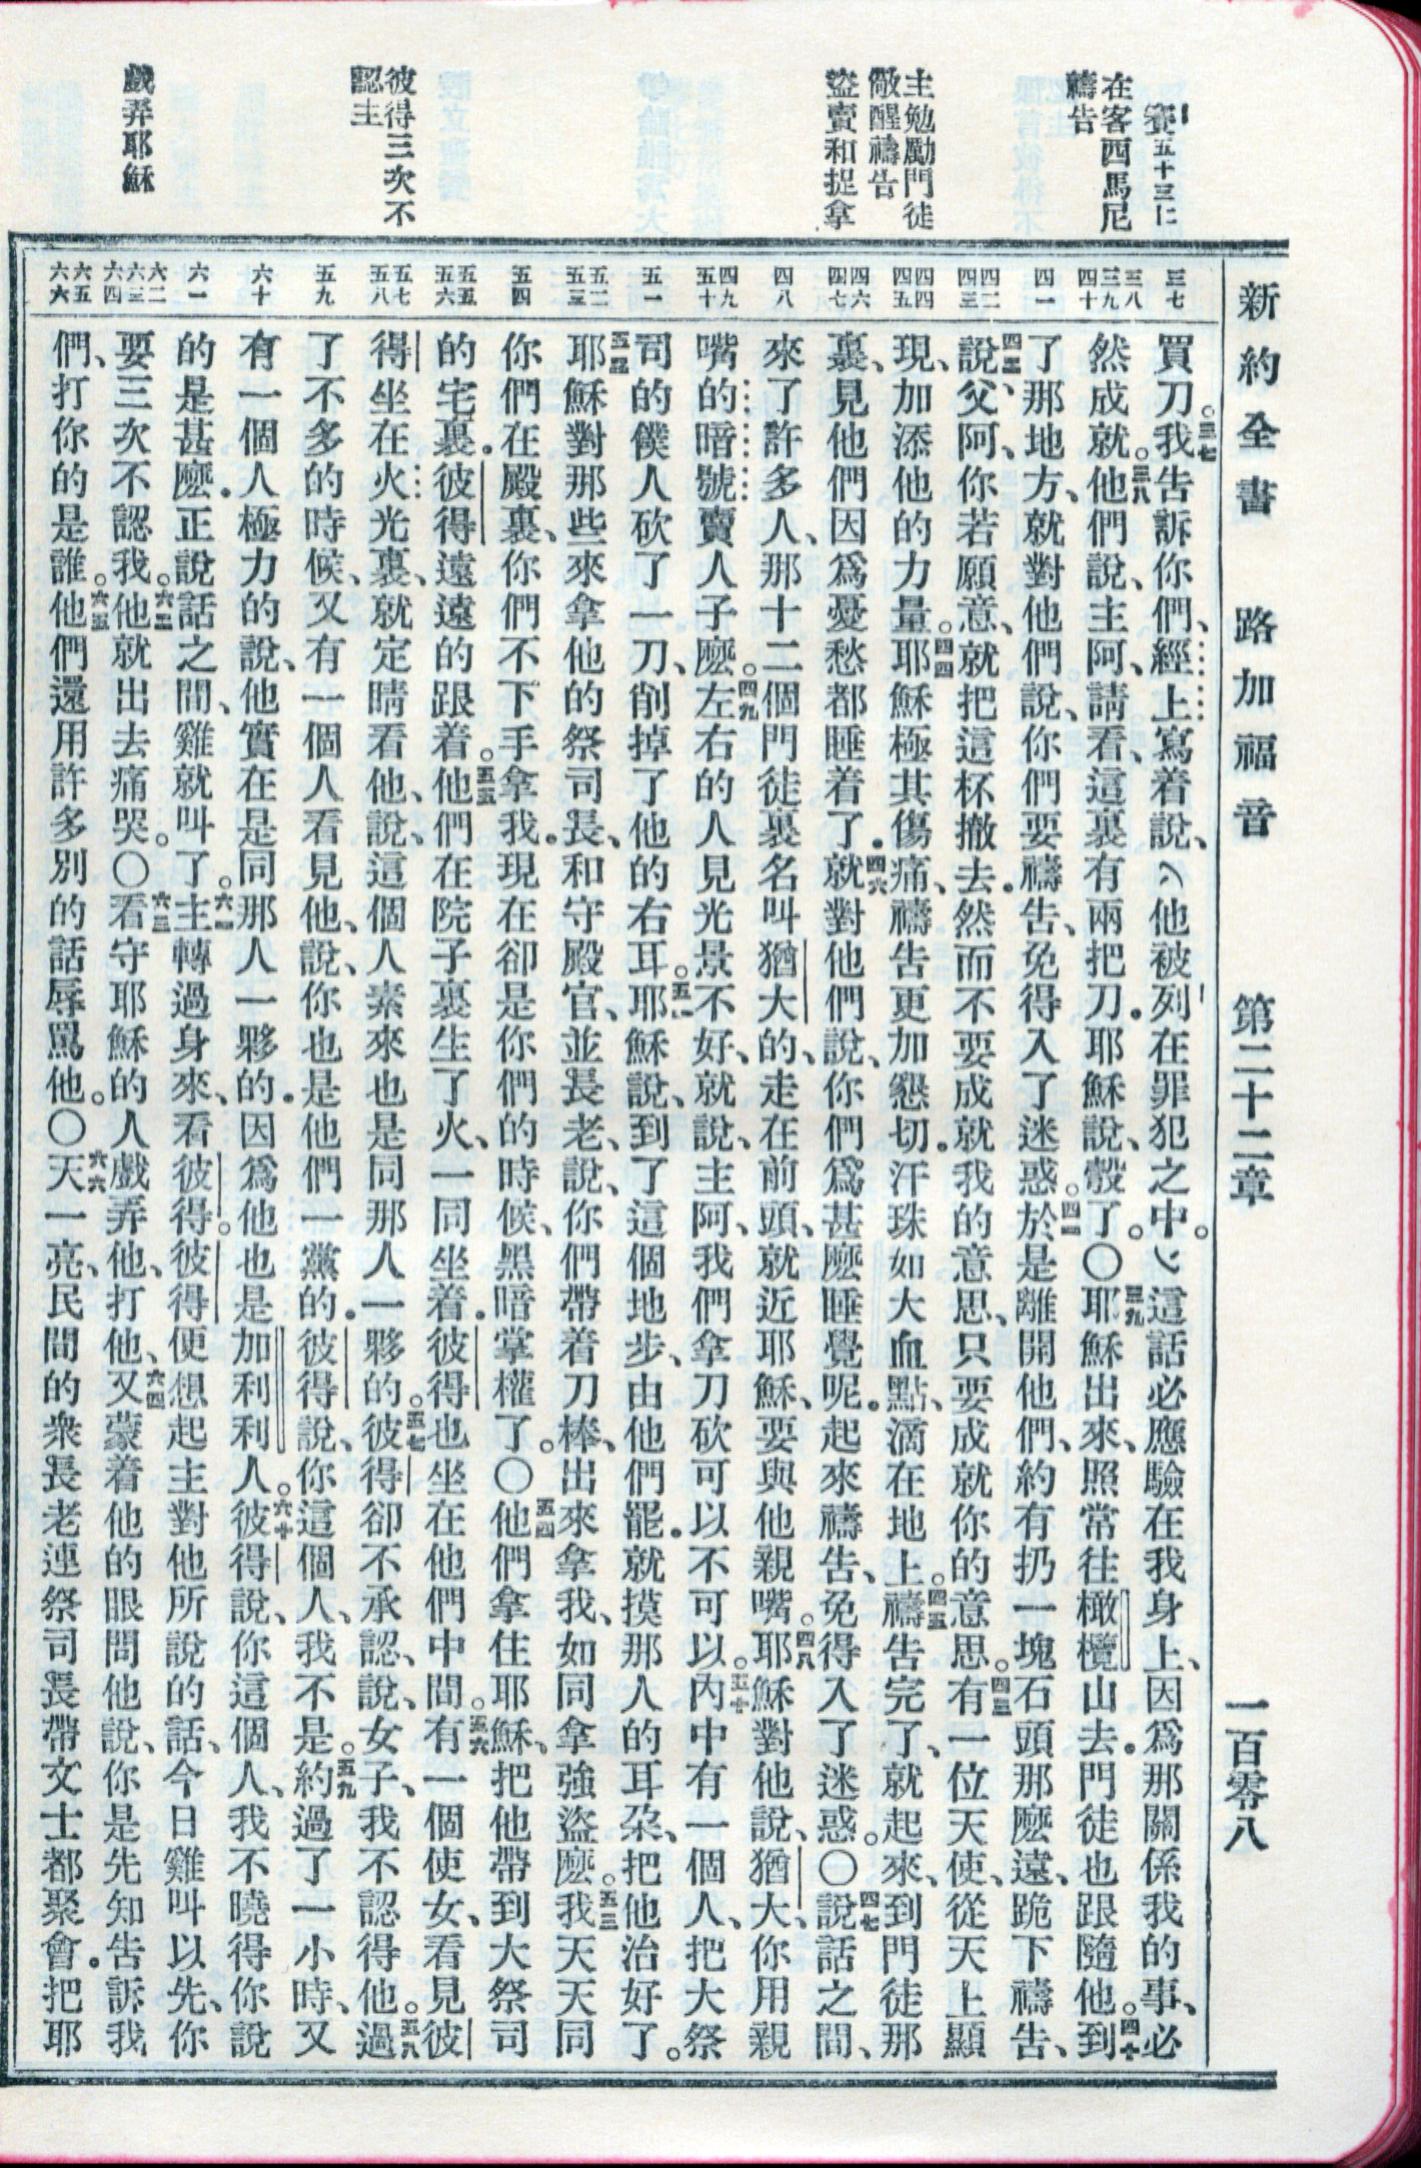 新約全書　路加福音　第二十二章　一百零八
賽五十三〇十二
在客西馬尼
禱告
主勉勵門徒
儆醒禱告
盜賣和捉拿
彼得三次不
認主
戲弄耶穌
三七
三八
三九
四十
四一
四二
四三
四四
四五
四六
四七
四八
四九
五十
五一
五二
五三
五四
五五
五六
五七
五八
五九
六十
六一
六二
六三
六四
六五
六六
買刀。三七我告訴你們、經上寫着說、(他被列在罪犯之中。)這話必應驗在我身上、因爲那關係我的事、必
然成就。三八他們說、主阿、請看、這裏有兩把刀．耶穌說、彀了。〇三九耶穌出來、照常往橄欖山去．門徒也跟隨他。四十到
了那地方、就對他們說、你們要禱告、免得入了迷惑。四一於是離開他們、約有扔一塊石頭那麼遠、跪下禱告、
四二說、父阿、你若願意、就把這杯撤去．然而不要成就我的意思、只要成就你的意思。四三有一位天使、從天上顯
現、加添他的力量。四四耶穌極其傷痛、禱告更加懇切．汗珠如大血點、滴在地上。四五禱告完了、就起來、到門徒那
裏、見他們因爲憂愁都睡着了．四六就對他們說、你們爲甚麼睡覺呢．起來禱告、免得入了迷惑。〇四七說話之間、
來了許多人、那十二個門徒裏名叫猶大的、走在前頭、就近耶穌、要與他親嘴。四八耶穌對他說、猶大、你用親
嘴的暗號賣人子麼。四九左右的人見光景不好、就說、主阿、我們拿刀砍可以不可以。五十內中有一個人、把大祭
司的僕人砍了一刀、削掉了他的右耳。五一耶穌說、到了這個地步、由他們罷．就摸那人的耳朶、把他治好了。
五二耶穌對那些來拿他的祭司長、和守殿官、並長老、說、你們帶着刀棒、出來拿我、如同拿強盜麼。五三我天天同
你們在殿裏、你們不下手拿我．現在卻是你們的時候、黑暗掌權了。〇五四他們拿住耶穌、把他帶到大祭司
的宅裏．彼得遠遠的跟着。五五他們在院子裏生了火、一同坐着．彼得也坐在他們中間。五六有一個使女、看見彼
得坐在火光裏、就定睛看他、說、這個人素來也是同那人一夥的。五七彼得卻不承認、說、女子、我不認得他。五八過
了不多的時候、又有一個人看見他、說、你也是他們一黨的．彼得說、你這個人、我不是。五九約過了一小時、又
有一個人極力的說、他實在是同那人一夥的．因爲他也是加利利人。六十彼得說、你這個人、我不曉得你說
的是甚麼．正說話之間、雞就叫了。六一主轉過身來、看彼得。彼得便想起主對他所說的話、今日雞叫以先、你
要三次不認我。六二他就出去痛哭。〇六三看守耶穌的人戲弄他、打他、六四又蒙着他的眼問他說、你是先知告訴我
們、打你的是誰。六五他們還用許多別的話辱罵他。〇六六天一亮、民間的衆長老連祭司長帶文士都聚會．把耶